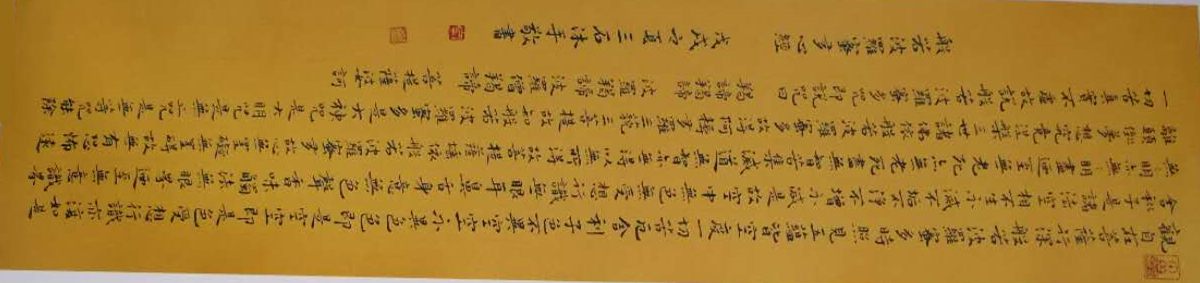 觀自在菩薩行深般若波羅蜜多時照見五蘊皆空度一切苦厄舍利子色不異空空不異色色即是空空即是色受想行識亦復如是
舍利子是諸法空相不生不滅不垢不淨不增不減是故空中無色無受想行識無眼耳鼻舌身意無色聲香味觸法無眼界迺至無意識界
無無明亦無無明盡迺至無老死亦無老死盡無苦集滅道無智亦無得以無所得故菩提薩埵依般若波羅蜜多故心無罣礙無罣礙故無有恐怖遠
離顛倒夢想究竟涅槃三世諸佛依般若波羅蜜多故得阿耨多羅三藐三菩提故知般若波羅蜜多是大神咒是大明咒是無上咒是無等等咒能除
一切苦真實不虛故說般若波羅蜜多咒即說咒曰 揭諦揭諦 波羅揭諦 波羅僧揭諦 菩提薩婆訶
般若波羅蜜多心經 戊戌夏三石沐手敬書